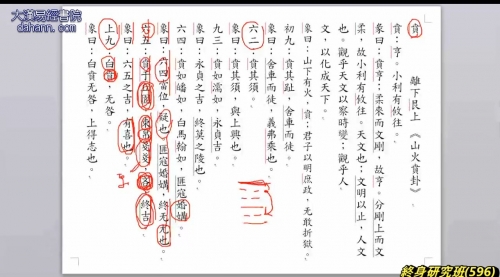 大漢易經書院
dahann.com
賁 離下艮上《山火賁卦》
賁:亨。小利有攸往。
彖曰:賁亨;柔來而文剛,故亨。分剛上而文
柔,故小利有攸往。天文也;文明以止,人文
也。觀乎天文以察時變;觀乎人
文,以化成天下。
象曰:山下有火,賁;君子以明庶政,无敢折獄。
初九:賁其趾,舍車而徒。
象曰:舍車而徒,義弗乘也。
六二:賁其須。
象曰:賁其須,與上興也。
九三:賁如濡如,永貞吉。
象曰:永貞之吉,終莫之陵也。
六四:賁如皤如,白馬翰如,匪寇婚媾。
象曰:六四當位,疑也。匪寇婚媾,終无尤也。
六五:賁于丘園,束帛戔戔,吝,終吉。
象曰:六五之吉,有喜也。
上九:白賁,无咎。
象曰:白賁无咎,上得志也。
終身研究班(596)